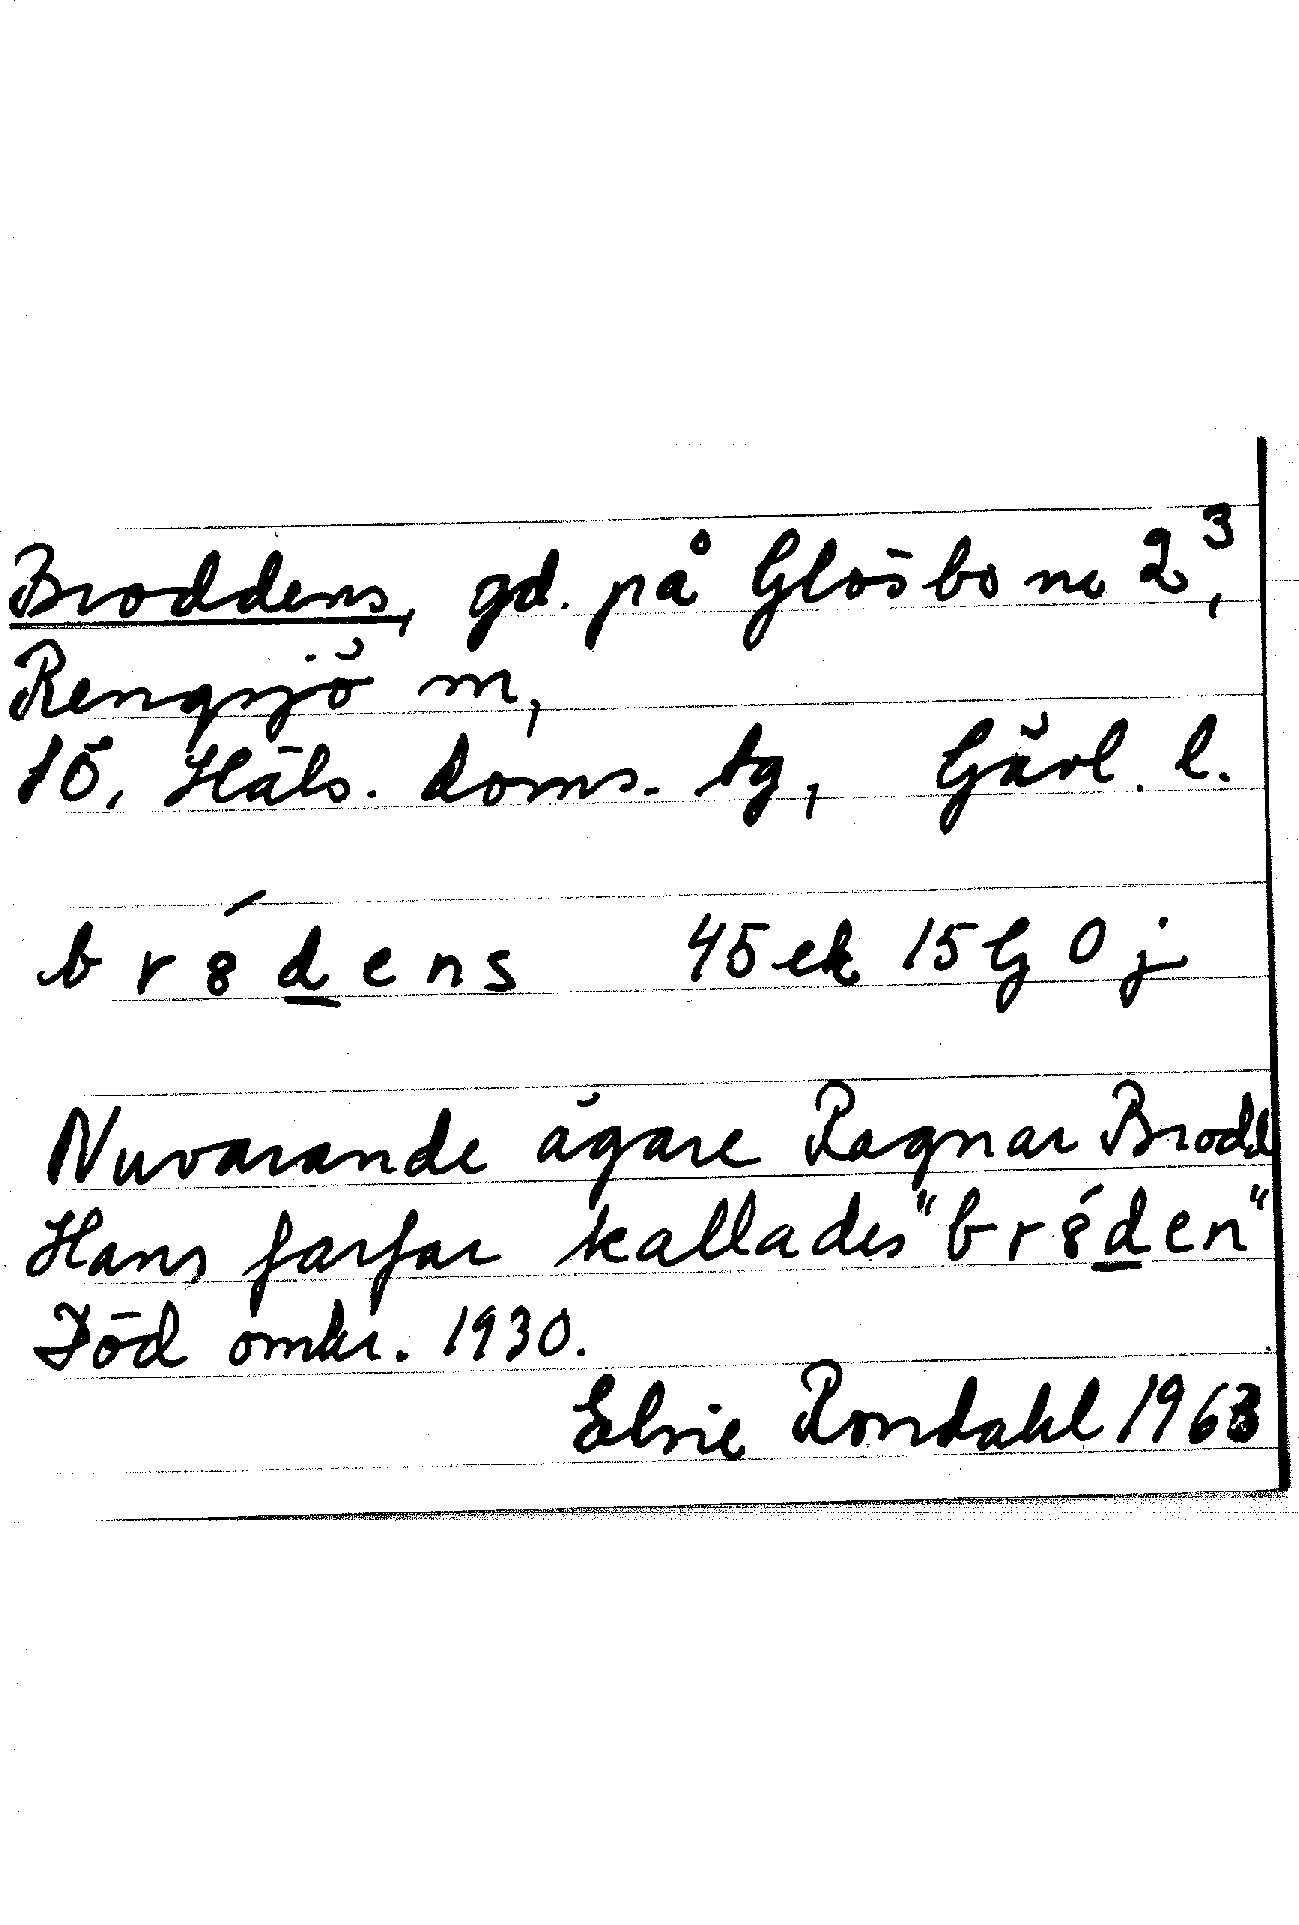 Broddens, gd. på Glösbo nr 2³,
Rengsjö sn,
Sö. Häls. doms. tg, Gävl. l.
br8́dens 45 ek 15 G 0 j
Nuvarande ägare Ragnar Brodd
Hans farfar kallades "br8́den"
Född omkr. 1930.
Elsie Rondahl 1963